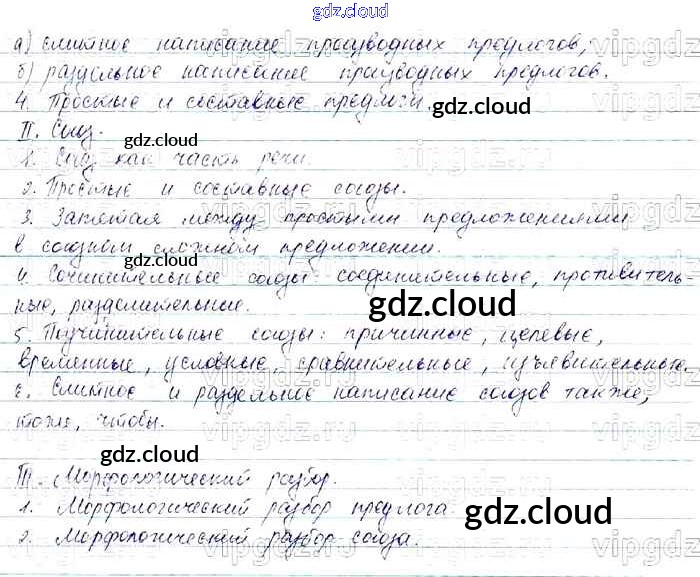 gdz.cloud
а) слитное написание производных предлогов;
б) раздельное написание производных предлогов.
4. Простые и составные предлоги.
gdz.cloud
II. Союз.
gdz.cloud
1. Союз как часть речи.
2. Простые и составные союзы.
gdz.cloud
3. Запятая между простыми предложениями
в союзном сложном предложении.
4. Сочинительные союзы: соединительные, противитель-
ные, разделительные.
gdz.cloud
5. Подчинительные союзы: причинные, целевые,
временные, условные, сравнительные, изъявительные.
6. Слитное и раздельное написание союзов также,
тоже, чтобы.
gdz.cloud
III. Морфологический разбор.
1. Морфологический разбор предлога.
gdz.cloud
2. Морфологический разбор союза.